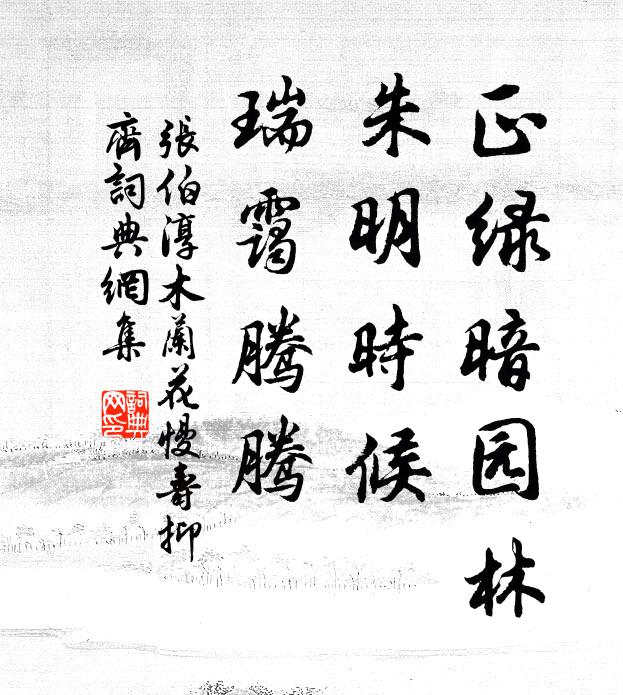 正绿暗园林
朱明時候
瑞靄腾腾
張伯淳木蘭花慢壽抑
齋詞典網集
詞典
网印